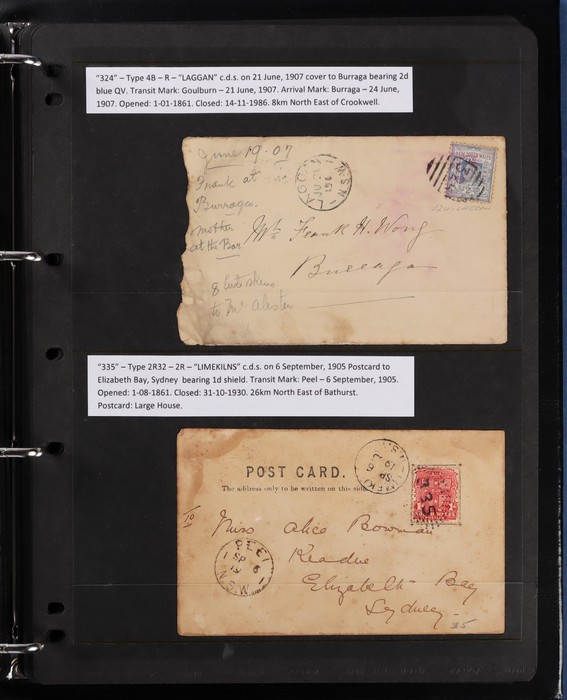 "324" – Type 4B – R – "LAGGAN" c.d.s. on 21 June, 1907 cover to Burraga bearing 2d
blue QV. Transit Mark: Goulburn – 21 June, 1907. Arrival Mark: Burraga – 24 June,
1907. Opened: 1-01-1861. Closed: 14-11-1986. 8km North East of Crookwell.
June 19.07
Frank at
Burraga.
mother
at the Bar
8
to Mr
LAGGAN N.S.W
JU 21
NEW SOUTH WALES
Mr Frank H. Wong
Burraga
"335" – Type 2R32 – 2R – "LIMEKILNS" c.d.s. on 6 September, 1905 Postcard to
Elizabeth Bay, Sydney bearing 1d shield. Transit Mark: Peel – 6 September, 1905.
Opened: 1-08-1861. Closed: 31-10-1930. 26km North East of Bathurst.
Postcard: Large House.
POST CARD.
The address only to be written on this side
SP 6
335
To
Miss Alice Bowman
Elizabeth Bay
Sydney
PEEL
SP 6
19
N.S.W
35